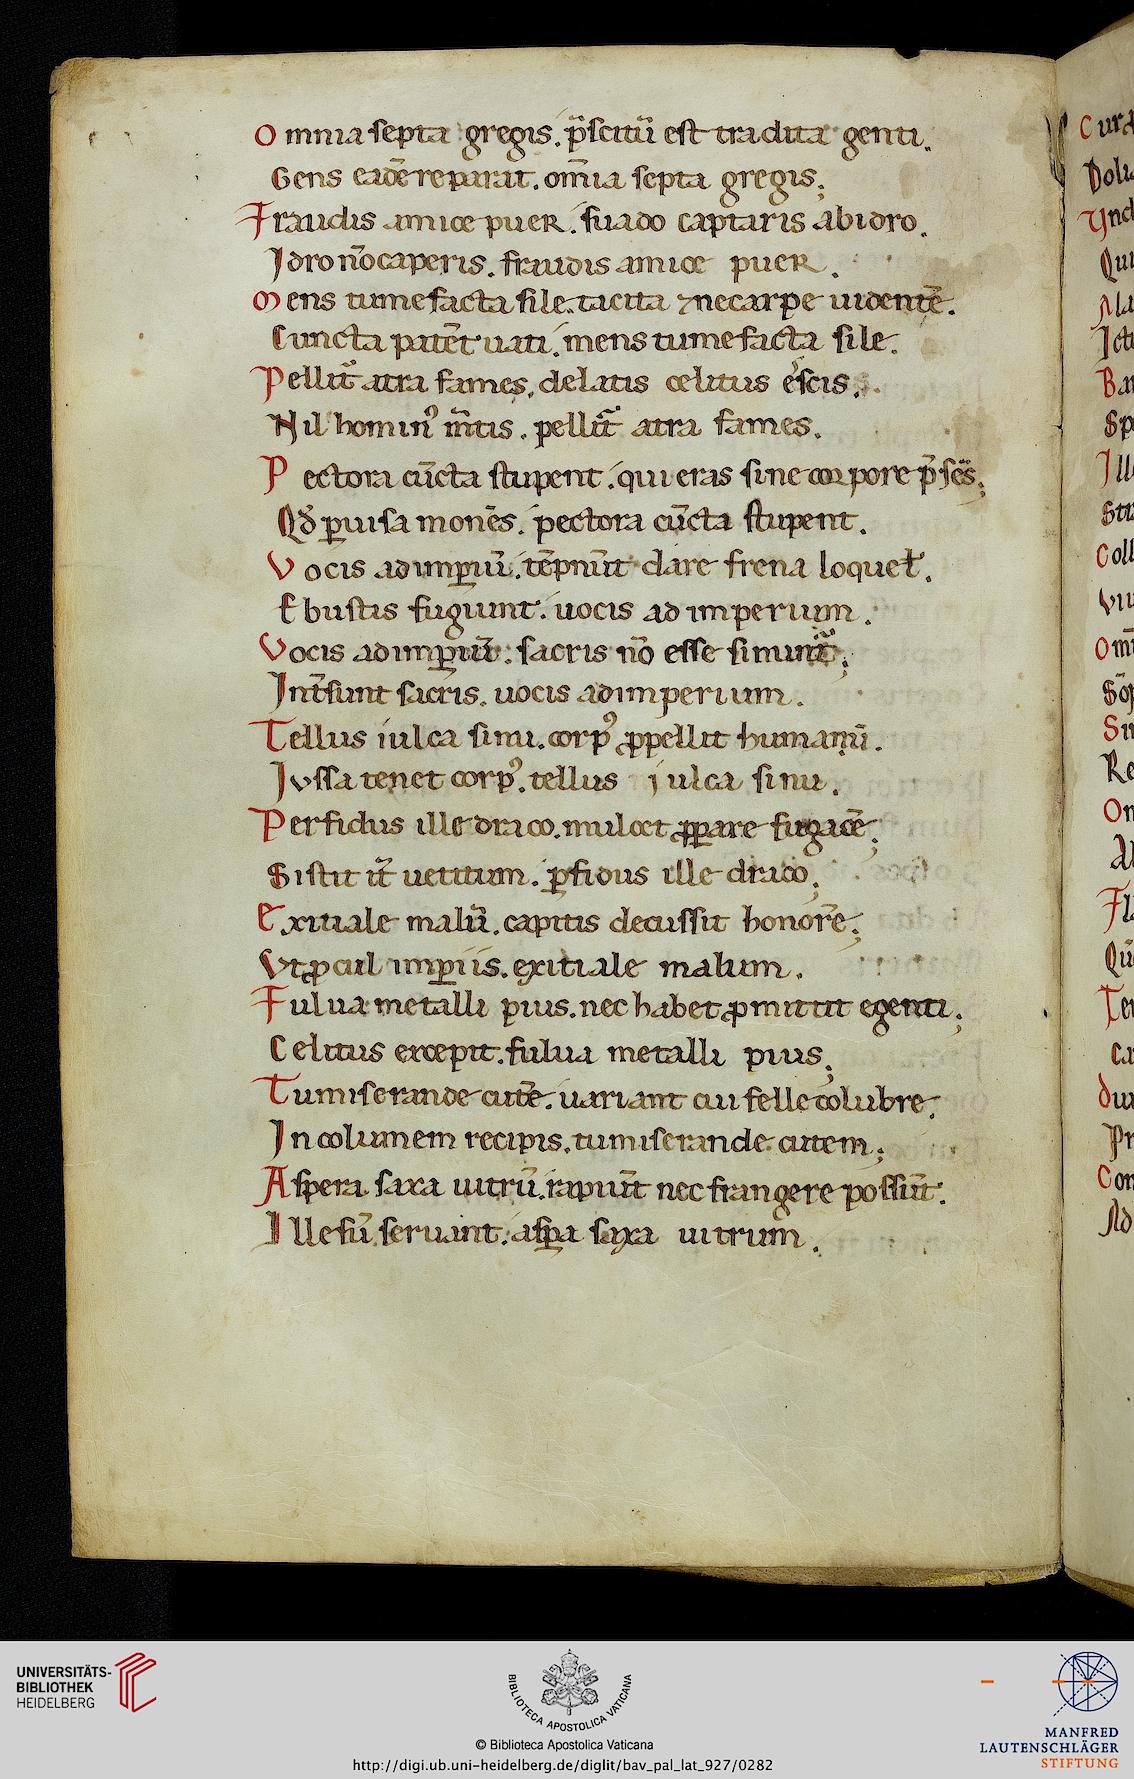 Omnia septa gregis. p̄scitū est tradita genti.
Gens eadē reparat. om̄ia septa gregis;
Fraudis amice puer. suado captaris abidro.
Idro nō caperis. fraudis amice puer.
Mens tumefacta sile. tacita ⁊ ne carpe uidentē.
Cuncta patēt uati. mens tumefacta sile.
Pellit᷑ atra fames. delatis celitus escis.
Nil homin᷒ m̄tis. pellit᷑ atra fames.
Pectora cūcta stupent. qui eras sine corpore p̄sēs;
Qd̄ ꝑuisa monēs. pectora cūcta stupent.
Vocis ad imꝑiū. tēpnūt dare frena loquel̵.
E bustis fugiunt. uocis ad imperium.
Vocis ad imꝑiū. sacris nō esse sinunt᷑;
Int̄sunt sacris. uocis ad imperium.
Tellus iulca sinu. corp᷒ ꝓpellit humanū.
Iussa tenet corp᷒. tellus iulca sinu.
Perfidus ille draco. mulcet ꝓꝑare fugacē;
Sistit it̄ uetitum. ꝑfidus ille draco;
Exitiale malū. capitis decussit honorē;
Vt ꝓcul imꝑiis. exitiale malum.
Fulua metalli pius. nec habet ꝓmittit egenti;
Celitus excepit. fulua metalli pius;
Tu miserande cutē. uariant cui felle colubre;
Incolumem recipis. tu miserande cutem;
Aspera saxa uitrū. rapiūt nec frangere possūt.
Ille sū seruant. asꝑa saxa uitrum.
Cura
Dolu
Qui
Icti
Ba
Sp
Ille
Coll
Om̄
Su
Re
On
Fl
Qū
Te
Ca
Du
Pr
Con
Ad
UNIVERSITÄTS-
BIBLIOTHEK
HEIDELBERG
BIBLIOTECA APOSTOLICA VATICANA
© Biblioteca Apostolica Vaticana
http://digi.ub.uni-heidelberg.de/diglit/bav_pal_lat_927/0282
MANFRED
LAUTENSCHLÄGER
STIFTUNG